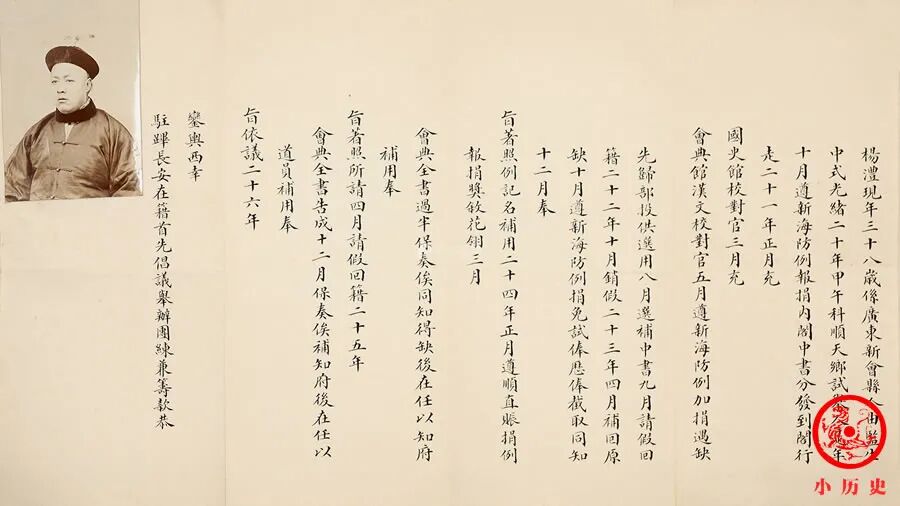 楊澧現年三十八歲係廣東新會縣人由監生
中式光緒二十年甲午科順天鄉試舉年
十月遵新海防例報捐內閣中書分發到閣行
走二十一年正月充
國史館校對官三月充
會典館漢文校對官五月遵新海防例加捐遇缺
先歸部投供選用八月選補中書九月請假回
籍二十二年十月銷假二十三年四月補回原
缺十月遵新海防例捐免試俸歷俸截取同知
十二月奉
旨著照例記名補用二十四年正月遵順直賑捐例
報捐獎敘花翎三月
會典全書過半保奏俟同知得缺後在任以知府
補用奉
旨著照所請四月請假回籍二十五年
會典全書告成十二月保奏俟補知府後在任以
道員補用奉
旨依議二十六年
鑾輿西幸
駐蹕長安在籍首先倡議舉辦團練兼籌款恭
小历史